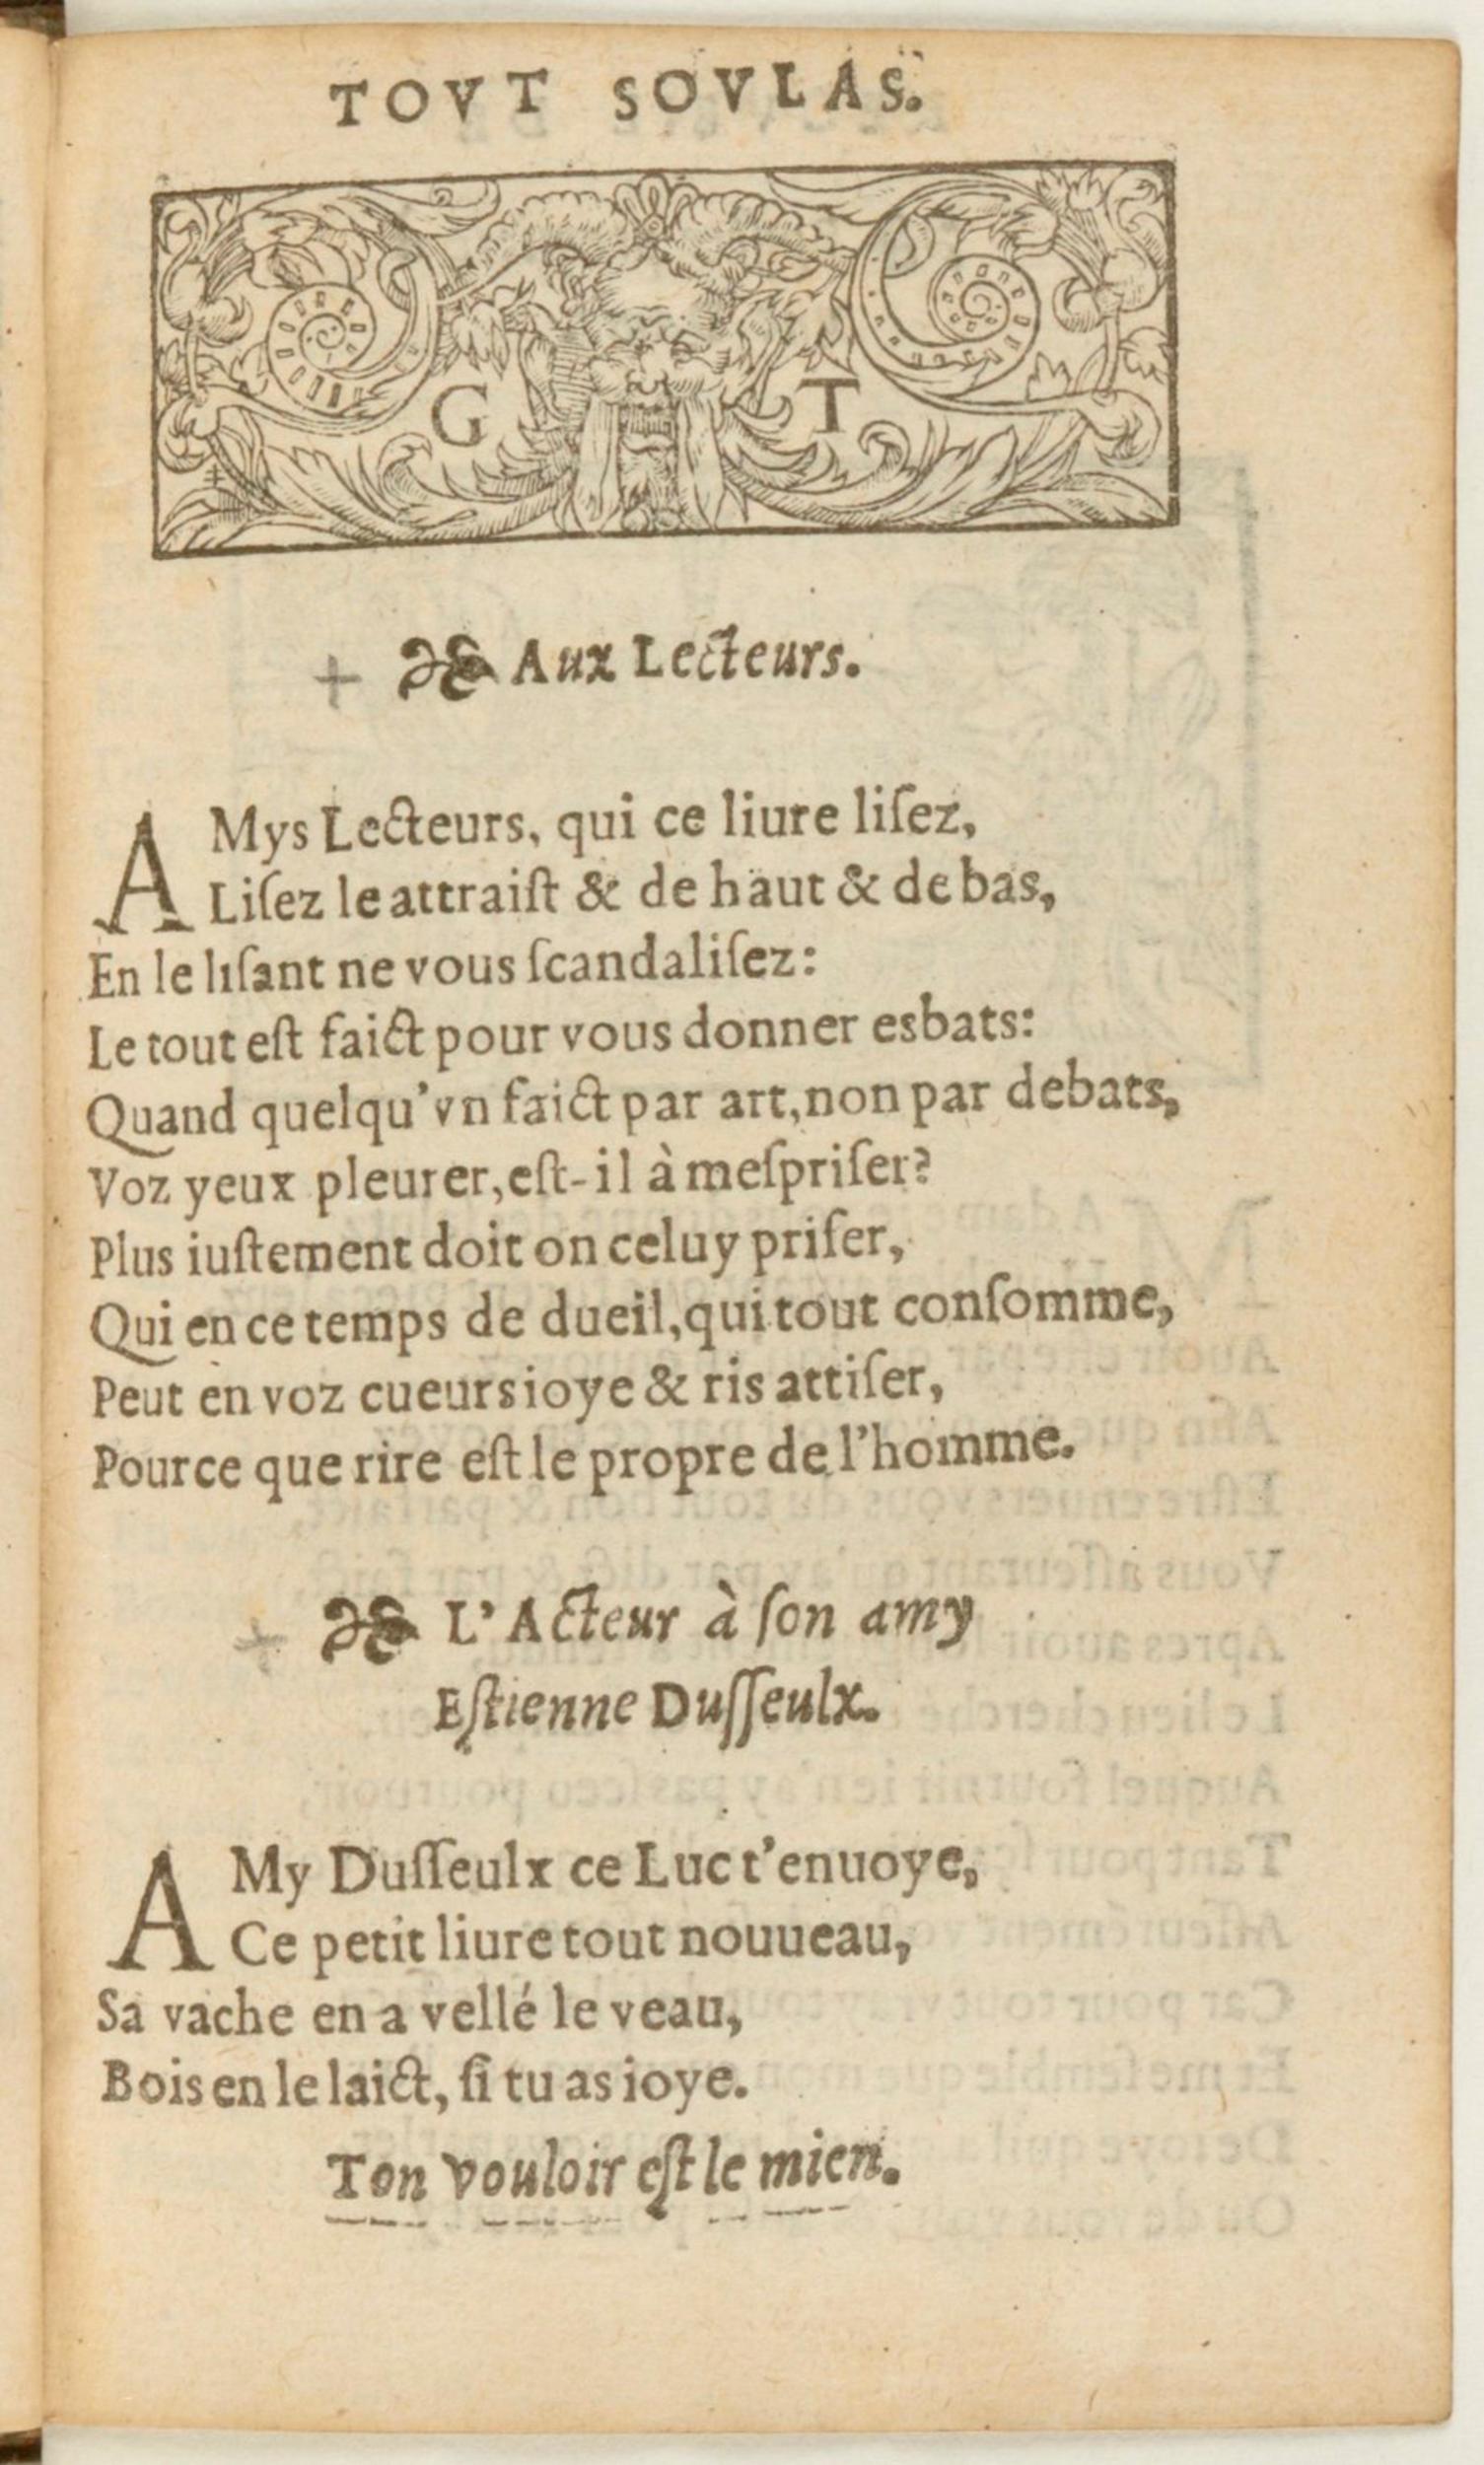 TOVT SOVLAS.
G T
Aux Lecteurs.
AMys Lecteurs, qui ce liure liſez,
Liſez le attraiſt & de haut & de bas,
En le liſant ne vous ſcandaliſez:
Le tout eſt faict pour vous donner esbats:
Quand quelqu'vn faict par art, non par debats,
Voz yeux pleurer, eſt-il à meſpriſer?
Plus iuſtement doit on celuy priſer,
Qui en ce temps de dueil, qui tout conſomme,
Peut en voz cueurs ioye & ris attiſer,
Pource que rire eſt le propre de l'homme.
L'Acteur à ſon amy
Eſtienne Duſſeulx.
AMy Duſſeulx ce Luc t'enuoye,
Ce petit liure tout nouueau,
Sa vache en a vellé le veau,
Bois en le laict, ſi tu as ioye.
Ton vouloir eſt le mien.